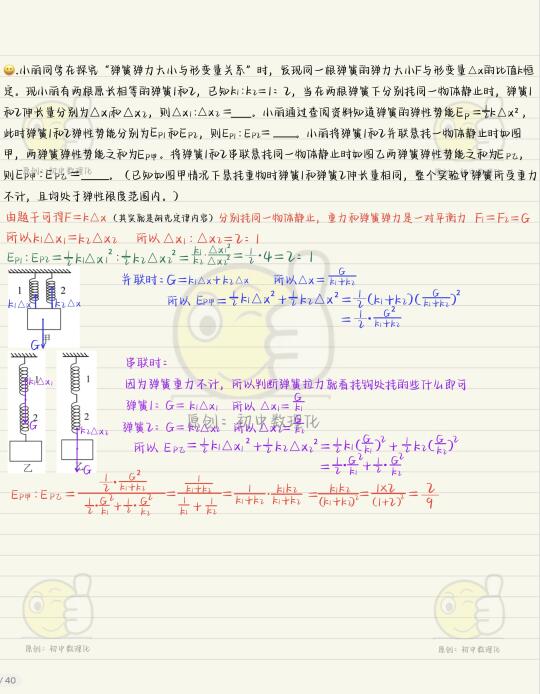 小丽同学在探究“弹簧弹力大小与形变量关系”时，发现同一根弹簧的弹力大小F与形变量△x的比值k恒
定。现小丽有两根原长相等的弹簧1和2，已知k₁:k₂=1:2，当在两根弹簧下分别挂同一物体静止时，弹簧1
和2伸长量分别为△x₁和△x₂，则△x₁:△x₂=___。小丽通过查阅资料知道弹簧的弹性势能Eₚ=½k△x²，
此时弹簧1和2弹性势能分别为Eₚ₁和Eₚ₂，则Eₚ₁:Eₚ₂=___。小丽将弹簧1和2并联悬挂一物体静止时如图
甲，两弹簧弹性势能之和为Eₚ甲。将弹簧1和2串联悬挂同一物体静止时如图乙两弹簧弹性势能之和为Eₚ乙，
则Eₚ甲:Eₚ乙=___。（已知如图甲情况下悬挂重物时弹簧1和弹簧2伸长量相同，整个实验中弹簧所受重力
不计，且均处于弹性限度范围内。）
由题干可得F=k△x（其实就是胡克定律内容）分别挂同一物体静止，重力和弹簧弹力是一对平衡力 F₁=F₂=G
所以k₁△x₁=k₂△x₂ 所以△x₁:△x₂=2:1
Eₚ₁:Eₚ₂=½k₁△x₁²:½k₂△x₂²=k₁/k₂·△x₁²/△x₂²=½·4=2:1
1 2
k₁△x k₂△x
甲
G
并联时：G=k₁△x+k₂△x 所以△x=G/(k₁+k₂)
所以Eₚ甲=½k₁△x²+½k₂△x²=½(k₁+k₂)(G/(k₁+k₂))²
=½·G²/(k₁+k₂)
1 k₁△x₁ 1
2 G 2 k₂△x₂
乙 乙 G
串联时：
因为弹簧重力不计，所以判断弹簧拉力就看挂钩处挂的些什么即可
弹簧1：G=k₁△x₁ 所以△x₁=G/k₁
弹簧2：G=k₂△x₂ 所以△x₂=G/k₂
所以Eₚ乙=½k₁△x₁²+½k₂△x₂²=½k₁(G/k₁)²+½k₂(G/k₂)²
=½·G²/k₁+½·G²/k₂
Eₚ甲:Eₚ乙=(½·G²/(k₁+k₂))/(½·G²/k₁+½·G²/k₂)=(1/(k₁+k₂))/(1/k₁+1/k₂)=1/(k₁+k₂)·k₁k₂/(k₁+k₂)=k₁k₂/(k₁+k₂)²=1×2/(1+2)²=2/9
原创：初中数理化
原创：初中数理化
原创：初中数理化
原创：初中数理化
原创：初中数理化
/ 40